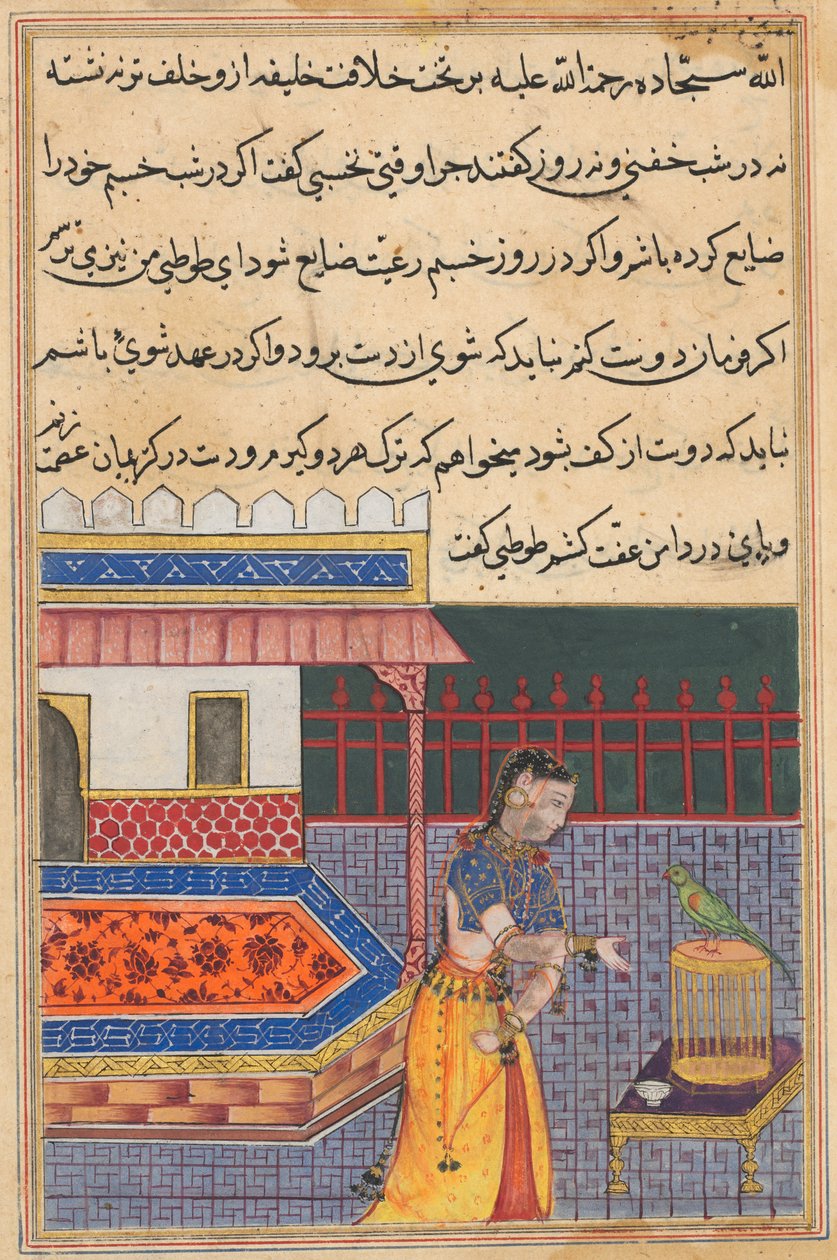 الله سجاده رحمة الله علیه بر تخت خلافت خلیفه از و خلف تر نه نشته
نه در شب خفتی و نه روز کفتند جرا وقتی نخسبی کفت اکر در شب خسبم خود را
ضایع کرده باشم و اکر در روز خسبم رعیت ضایع شود ای طوطی من نیز می ترسم
اکر فرمان دوست کنم نباید که شوی از دست برود و اکر در عهد شوئ باشم
نباید که دوست از کف بشود میخواهم که ترک هر دو کیرم و دست در کریبان عصمت زنم
و پای در دامن عفت کشم طوطی کفت